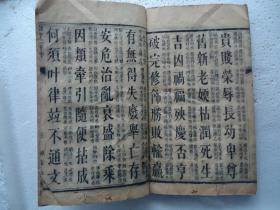 貴賤榮辱長幼卑尊
舊新老嫩枯潤死生
吉凶禍福殃慶否亨
破完修飾勝敗輸贏
有無得失廢舉亡存
安危治亂哀盛除乘
因類牽引隨便拈成
何須叶律竝不通文